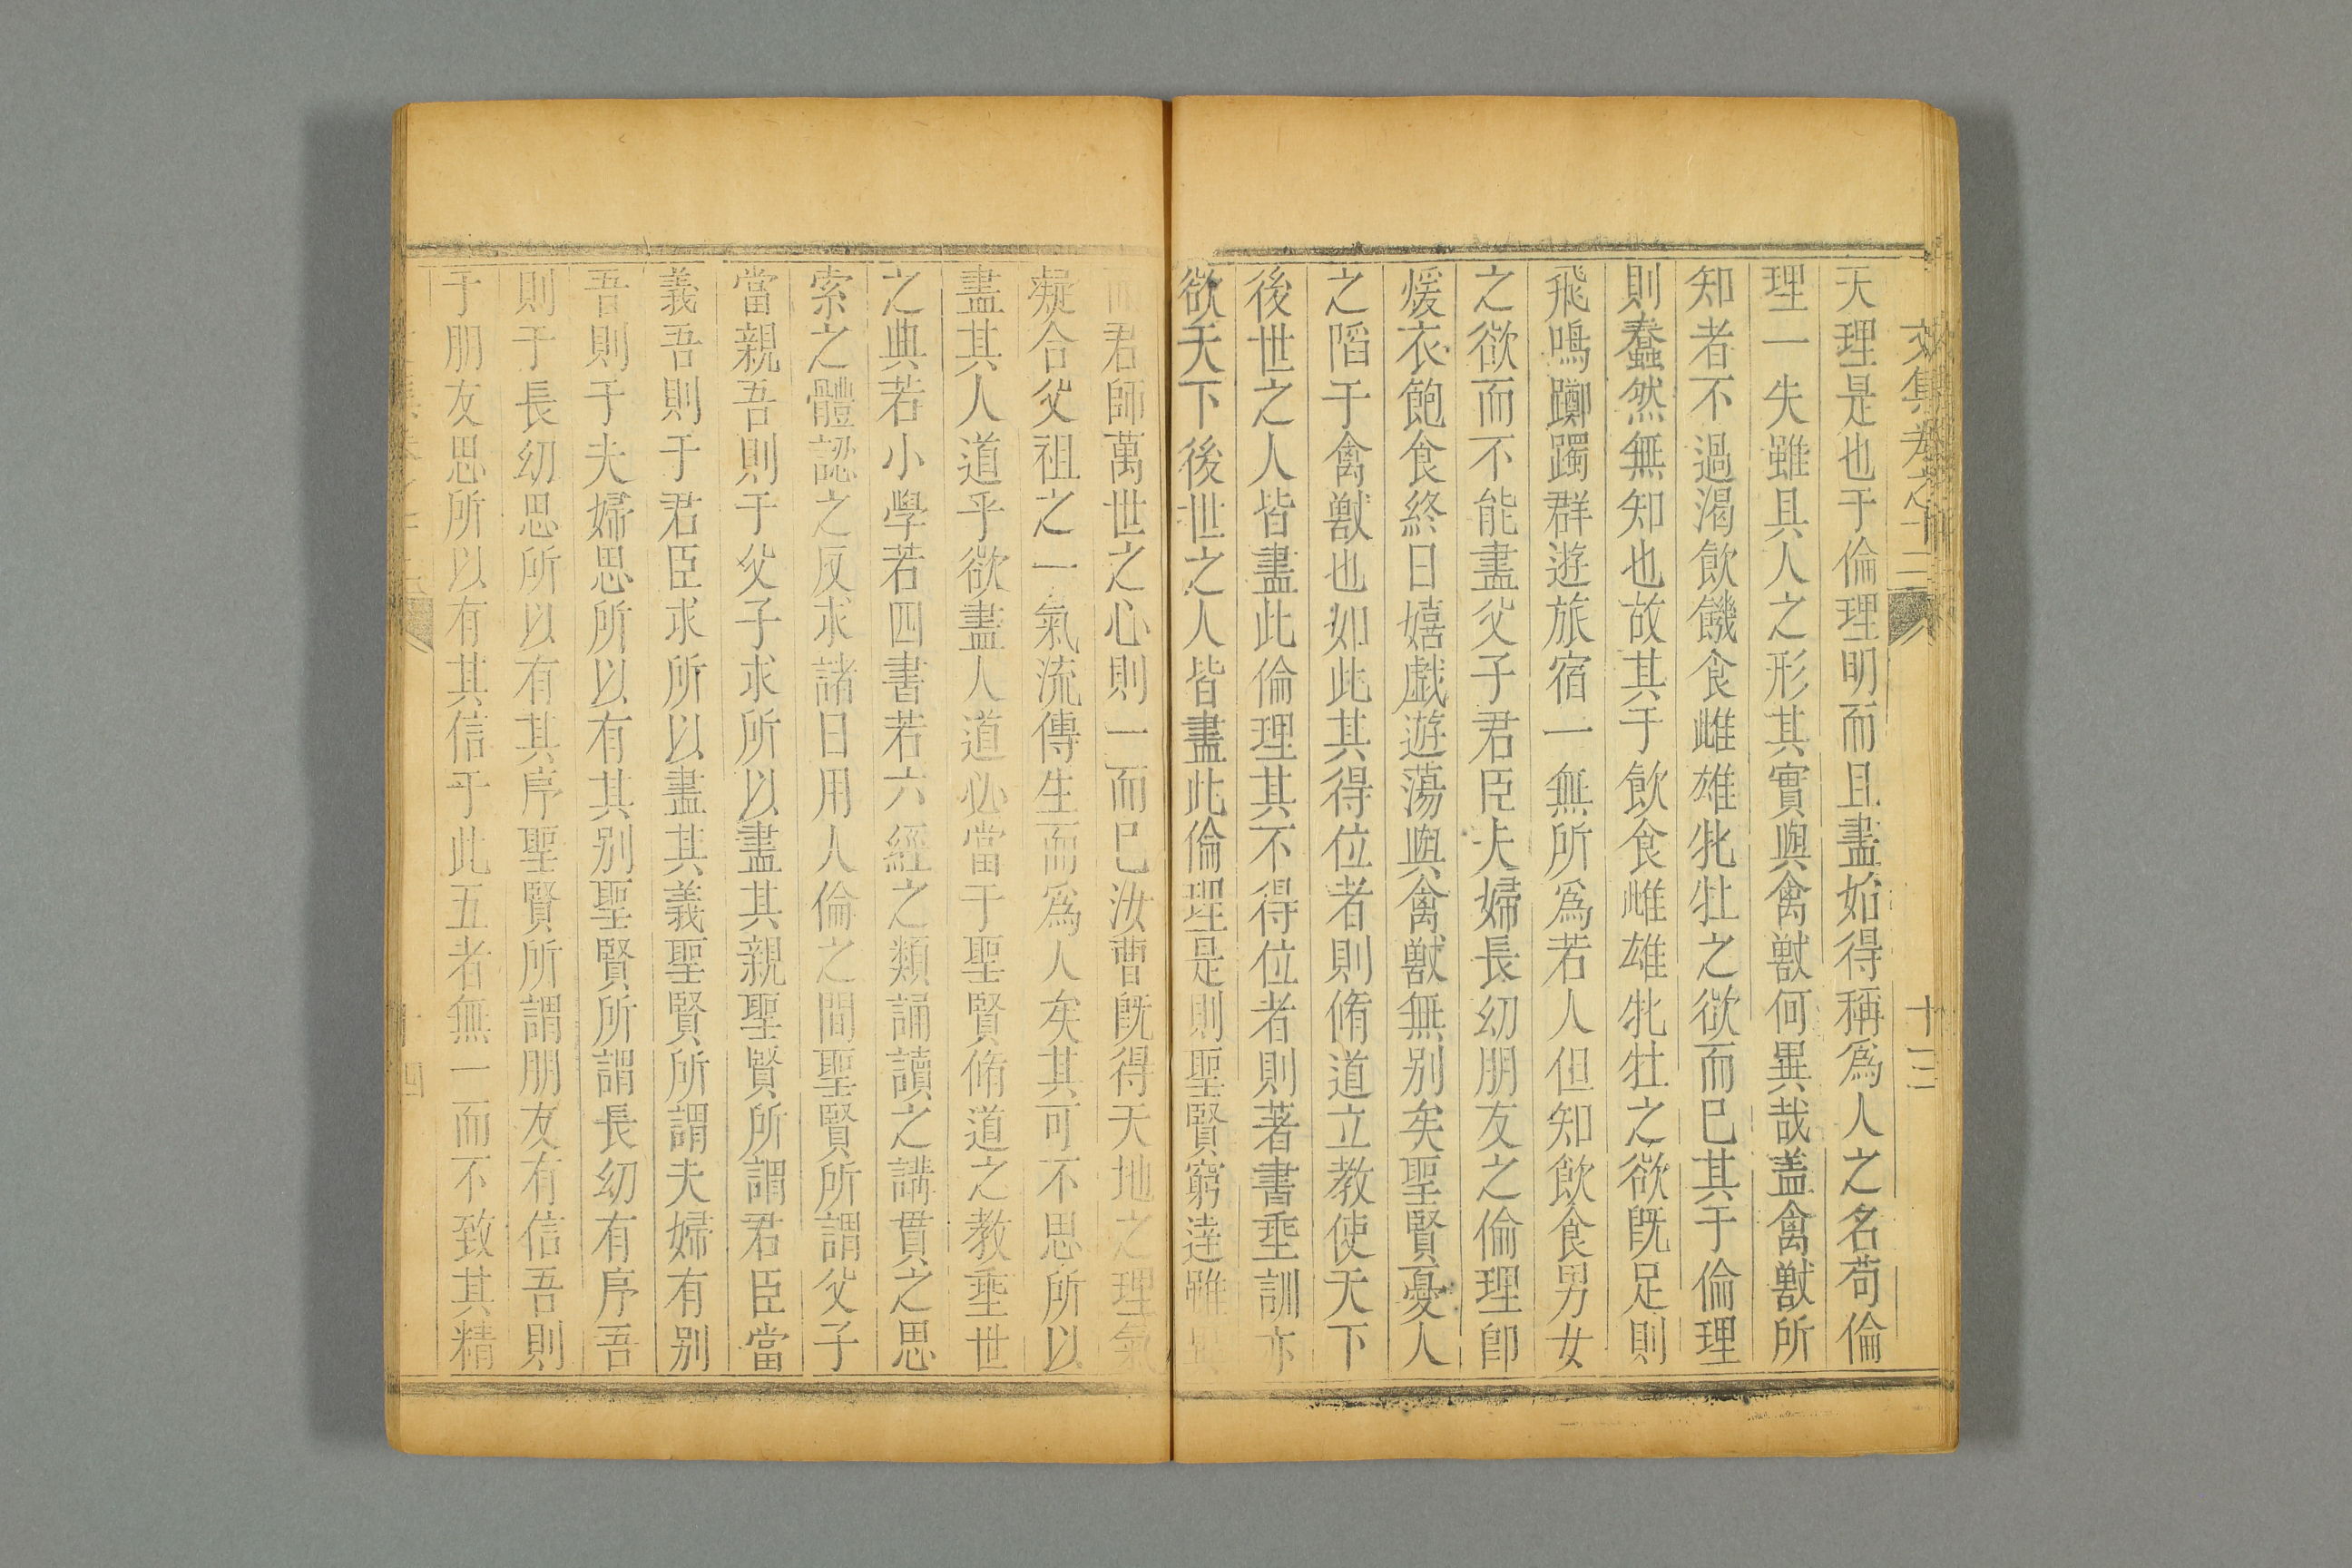 文集卷之十二 十三
天理是也于倫理明而且盡始得稱爲人之名苟倫
理一失雖具人之形其實與禽獸何異哉盖禽獸所
知者不過渴飲饑食雌雄牝牡之欲而已其于倫理
則蠢然無知也故其于飲食雌雄牝牡之欲既足則
飛鳴躑躅群遊旅宿一無所爲若人但知飲食男女
之欲而不能盡父子君臣夫婦長幼朋友之倫理即
煖衣飽食終日嬉戲遊蕩與禽獸無别矣聖賢憂人
之陷于禽獸也如此其得位者則脩道立教使天下
後世之人皆盡此倫理其不得位者則著書垂訓亦
欲天下後世之人皆盡此倫理是則聖賢窮達雖異
而君師萬世之心則一而已汝曹既得天地之理氣
凝合父祖之一氣流傳生而爲人矣其可不思所以
盡其人道乎欲盡人道必當于聖賢脩道之教垂世
之典若小學若四書若六經之類誦讀之講貫之思
索之體認之反求諸日用人倫之間聖賢所謂父子
當親吾則于父子求所以盡其親聖賢所謂君臣當
義吾則于君臣求所以盡其義聖賢所謂夫婦有别
吾則于夫婦思所以有其别聖賢所謂長幼有序吾
則于長幼思所以有其序聖賢所謂朋友有信吾則
于朋友思所以有其信于此五者無一而不致其精